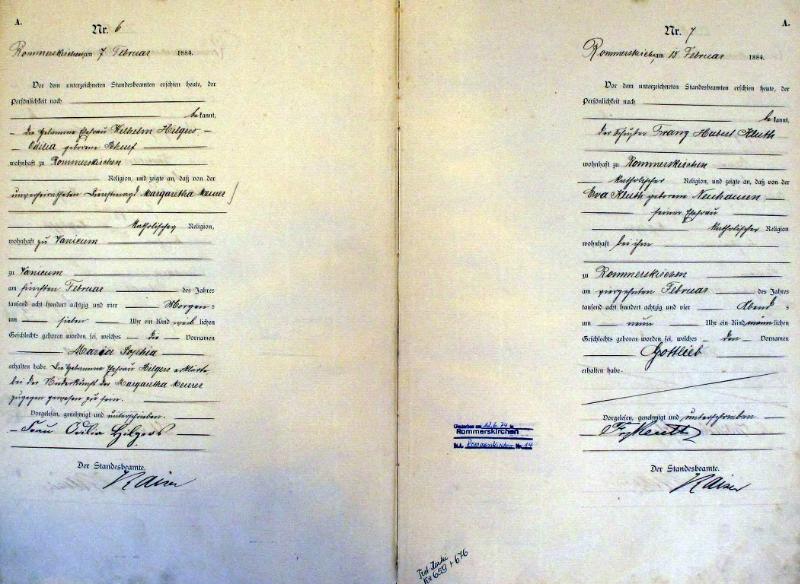 A.
Nr. 6
Rommerskirchen am 7. Februar 1884.
Vor dem unterzeichneten Standesbeamten erschien heute, der
Persönlichkeit nach
bekannt,
die Ehefrau Wilhelm Hilgers
Odilia geborene
wohnhaft zu Rommerskirchen
Religion, und zeigte an, daß von der
unverheiratheten Dienstmagd Margaretha Meurer
katholischer Religion,
wohnhaft zu Vanicum
zu Vanicum
am fünften Februar des Jahres
tausend acht hundert achtzig und vier Morgens
um sieben Uhr ein Kind weiblichen
Geschlechts geboren worden sei, welches die Vornamen
Maria Sophia
erhalten habe. Die Ehefrau Hilgers erklärte
bei der Niederkunft der Margaretha Meurer
zugegen gewesen zu sein.
Vorgelesen, genehmigt und unterschrieben
Frau Odilia Hilgers
Der Standesbeamte.
Kaiser
A.
Nr. 7
Rommerskirchen am 15. Februar 1884.
Vor dem unterzeichneten Standesbeamten erschien heute, der
Persönlichkeit nach
bekannt,
der Franz Hubert Kluth
wohnhaft zu Rommerskirchen
katholischer
Religion, und zeigte an, daß von der
Eva Kluth geborene Neuhausen
seiner Ehefrau
katholischer Religion
wohnhaft bei ihm
zu Rommerskirchen
am vierzehnten Februar des Jahres
tausend acht hundert achtzig und vier Abends
um neun Uhr ein Kind männlichen
Geschlechts geboren worden sei, welches den Vornamen
Gottlieb
erhalten habe.
Vorgelesen, genehmigt und unterschrieben
Kluth
Der Standesbeamte.
Kaiser
Gestorben am
Rommerskirchen
Rommerskirchen Nr. 14
Nr 659 + 676